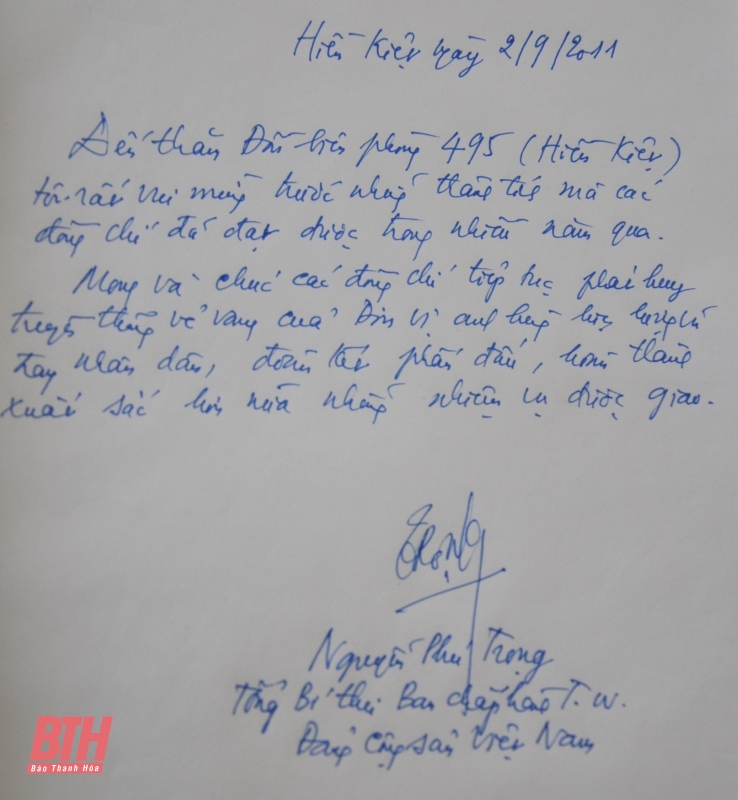 Hiền Kiệt ngày 2/9/2011
Đến thăm Đồn biên phòng 495 (Hiền Kiệt)
tôi rất vui mừng trước những thành tích mà các
đồng chí đã đạt được trong nhiều năm qua.
Mong và chúc các đồng chí tiếp tục phát huy
truyền thống vẻ vang của Đơn vị anh hùng
nhân dân, đoàn kết phấn đấu, hoàn thành
xuất sắc hơn nữa những nhiệm vụ được giao.
Trọng
Nguyễn Phú Trọng
Tổng Bí thư Ban chấp hành T.W.
Đảng cộng sản Việt Nam
BTH
Báo Thanh Hóa